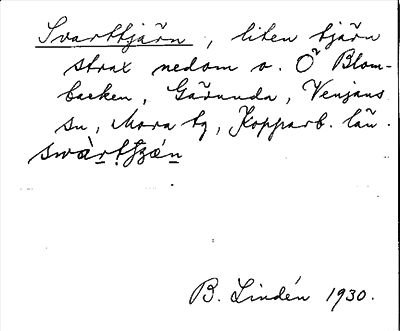 Svarttjärn, liten tjärn
strax nedom o. Ö Blom-
backen, Gärunda, Venjans
sn, Mora tg, Kopparb. län.
B. Lindén 1930.